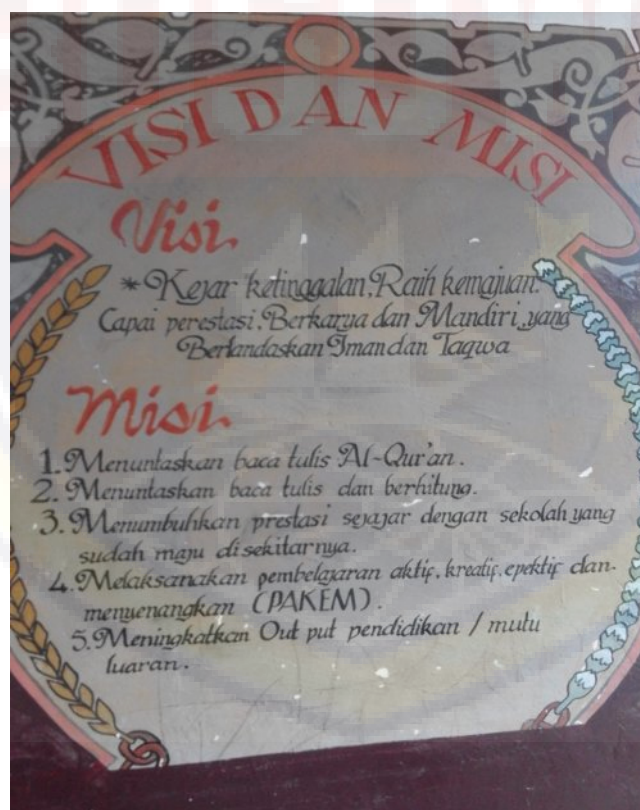 VISI DAN MISI
Visi.
* Kejar ketinggalan, Raih kemajuan.
Capai perestasi, Berkarya dan Mandiri yang
Berlandaskan Iman dan Taqwa
Misi.
1. Menuntaskan baca tulis Al-Qur'an.
2. Menuntaskan baca tulis dan berhitung.
3. Menumbuhkan prestasi sejajar dengan sekolah yang
sudah maju disekitarnya.
4. Melaksanakan pembelajaran aktif, kreatif, epektif dan
menyenangkan (PAKEM).
5. Meningkatkan Out put pendidikan / mutu
luaran.